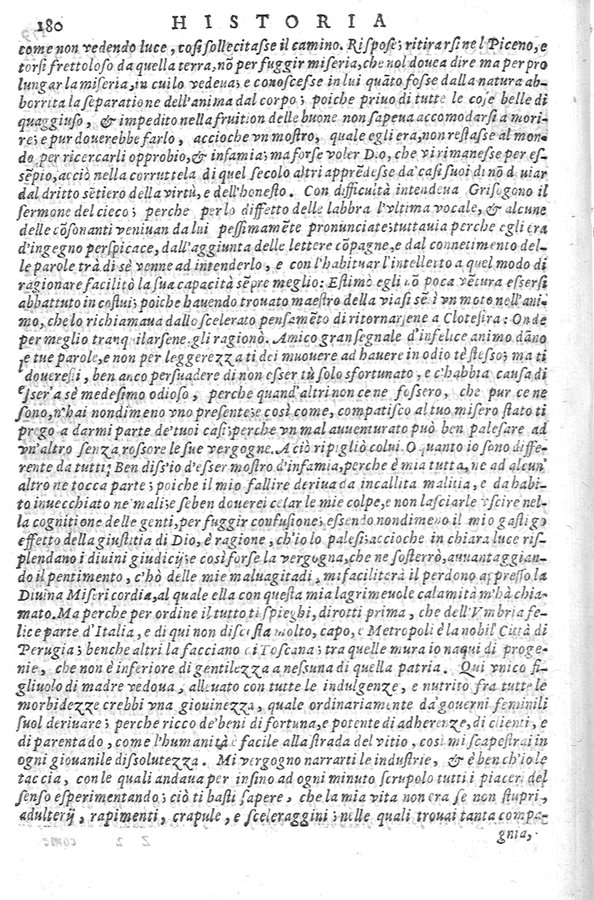 180 HISTORIA
come non vedendo luce, così sollecitasse il camino. Rispose; ritirarsi nel Piceno, e
torsi frettoloso da quella terra, nõ per fuggir miseria, che nol douea dire ma per pro
lungar la miseria, in cui lo vedeua; e conoscesse in lui quãto fosse dalla natura ab-
borrita la separatione dell'anima dal corpo; poiche priuo di tutte le cose belle di
quaggiuso, & impedito nella fruition delle buone non sapeua accomodarsi a mori-
re; e pur douerebbe farlo, accioche vn mostro, quale egli era, non restasse al mon-
do per ricercarli opprobio, & infamia; ma forse voler Dio, che vi rimanesse per es-
sẽpio, acciò nella corruttela di quel secolo altri apprẽdesse da' casi suoi di nõ d uiar
dal dritto sẽtiero della virtù, e dell'honesto. Con difficultà intendeua Grisogono il
sermone del cieco; perche per lo diffetto delle labbra l'vltima vocale, & alcune
delle cõsonanti veniuan da lui pessimamẽte pronunciate; tuttauia perche egli era
d'ingegno perspicace, dall'aggiunta delle lettere cõpagne, e dal connetimento del-
le parole trà di sè venne ad intenderlo, e con l'habituar l'intelletto a quel modo di
ragionare facilitò la sua capacità sẽpre meglio: Estimò egli nõ poca vẽtura essersi
abbattuto in costui; poiche hauendo trouato maestro della via si sẽtì vn moto nell'ani-
mo, che lo richiamaua dallo scelerato pensamẽto di ritornarsene a Clotestra: Onde
per meglio tranquilarsene. gli ragionò. Amico gran segnale d'infelice animo dãno
le tue parole, e non per leggerezza ti dei muouere ad hauere in odio te stesso; ma ti
douersti, ben anco persuadere di non esser tù solo sfortunato, e c'habbia causa di
esser a sè medesimo odioso, perche quand'altri non ce ne fossero, che pur ce ne
sono, n'hai nondimeno vno presente; e così come, compatisco al tuo misero stato ti
prego a darmi parte de'tuoi casi; perche vn mal auuenturato può ben palesare ad
vn'altro senza rossore le sue vergogne. A ciò ripigliò colui. O quanto io sono diffe-
rente da tutti; Ben diss'io d'esser mostro d'infamia, perche è mia tutta, ne ad alcun'
altro ne tocca parte; poiche il mio fallire deriua da incallita malitia, e da habi-
to inuecchiato ne' mali; e se ben douerei celar le mie colpe, e non lasciarle vscire nel-
la cognitione delle genti, per fuggir confusione; essendo nondimeno il mio gastigo
effetto della giustitia di Dio, è ragione, ch'io lo palesi; accioche in chiara luce ris-
plendano i diuini giudicij; e così forse la vergogna, che ne sosterrò, auuantaggian-
do il pentimento, c'hò delle mie maluagitadi, mi faciliterà il perdono appresso la
Diuina Misericordia, al quale ella con questa mia lagrimeuole calamità m'hà chia-
mato. Ma perche per ordine il tutto ti spieghi, dirotti prima, che dell'Vmbria fe-
lice parte d'Italia, e di qui non discosta molto, capo, e Metropoli è la nobil' Città di
Perugia; benche altri la facciano di Toscana; tra quelle mura io naqui di proge-
nie, che non è inferiore di gentilezza a nessuna di quella patria. Qui vnico fi-
gliuolo di madre vedoua, alleuato con tutte le indulgenze, e nutrito fra tutte le
morbidezze crebbi vna giouinezza, quale ordinariamente da gouerni feminili
suol deriuare; perche ricco de'beni di fortuna, e potente di adherenze, di clienti, e
di parentado, come l'humanità è facile alla strada del vitio, così mi scapestrai in
ogni giouanile dissolutezza. Mi vergogno narrarti le industrie, & è ben ch'io le
taccia, con le quali andaua per insino ad ogni minuto scrupolo tutti i piaceri del
senso esperimentando; ciò ti basti sapere, che la mia vita non era se non stupri,
adulterij, rapimenti, crapule, e sceleraggini; nelle quali trouai tanta compa-
gnia,